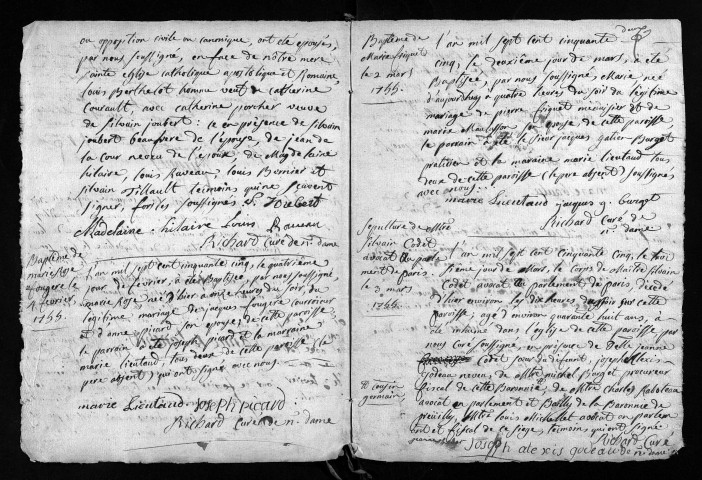 ou opposition civile ou canonique, ont eté epousés,
par nous soussigné, en face de nôtre mere
sainte eglise catholique apostolique et Romaine
Louis Berthelot homme veuf de catherine
Courault, avec catherine porcher veuve
de Silvain joubert : ce en présence de Silvain
joubert beaufrere de l'epouse, de jean de
la cour neveu de l'epouse, de Magdeleine
hilaire, louis Raveau, louis Bernier et
Silvain tillault temoins qui ne scavent
signer, fors les soussignés S. Joubert
Madelaine hilaire Louis Raveau
Richard curé de nre dame
Baptême de
marie Rose
fougere le
4 fevrier
1755.
l'an mil sept cent cinquante cinq, le quatrieme
jour de fevrier, a été Baptisée par nous soussigné,
marie Rose née d'hier a onze heures du soir, du
legitime mariage de jacques fougere couvreur
et d'anne picard son epouse, de cette paroisse,
le parroin a été joseph picard et la marraine
marie lieutaud, tous deux de cette paroisse (le
pere absent) qui ont signé avec nous.
marie Lieutaud Joseph picard
Richard curé de nre dame
Baptême de
Marie Siquet
le 2 mars
1755.
l'an mil sept cent cinquante
cinq, le deuxième jour de mars, a été
Baptisée, par nous soussigné, Marie née
d'aujourdhuy à quatre heures du soir du légitime
mariage de pierre Siquet meunier et de
marie son epouse, de cette paroisse
le parrain a été le sieur jacques Burgot
praticien et la maraine marie lieutaud tous
deux de cette paroisse (le pere absent) soussignés
avec nous :
marie Lieutaud jacques g. burgot
Richard curé de
nre dame
Sepulture de Mtre
Silvain Codet
avocat au parle
ment de paris.
le 3 mars
1755.
l'an mil sept cent cinquante cinq, le troi
sieme jour de Mars, le corps de Maitre Silvain
Codet avocat au parlement de paris, decedé
d'hier environ les dix heures du soir sur cette
paroisse, agé d'environ quarante huit ans, a
été inhumé dans l'eglise de cette paroisse, par
nous curé soussigné, en présence de Delle jeanne
Codet soeur du defunt, joseph Alexis
Godeau neveu, de Mtre michel Burgot procureur
fiscal de cette Baronnie, de Mtre Charles Rabateau
avocat en parlement et Bailly de la Baronnie de
preuilly, Mtre louis avocat en parlem
ent et fiscal de ce siege, temoins, qui ont signé
cousin
germain,
Richard Curé
de nre dame
Joseph alexis godeau